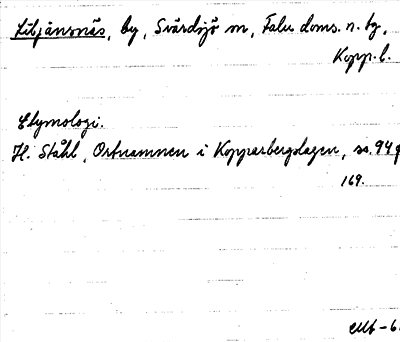 Liljänsnäs, by, Svärdsjö sn, Falu doms. n. tg,
Kopp. l.
Etymologi.
H. Ståhl, Ortnamnen i Kopparbergslagen, ss. 94 f
169.